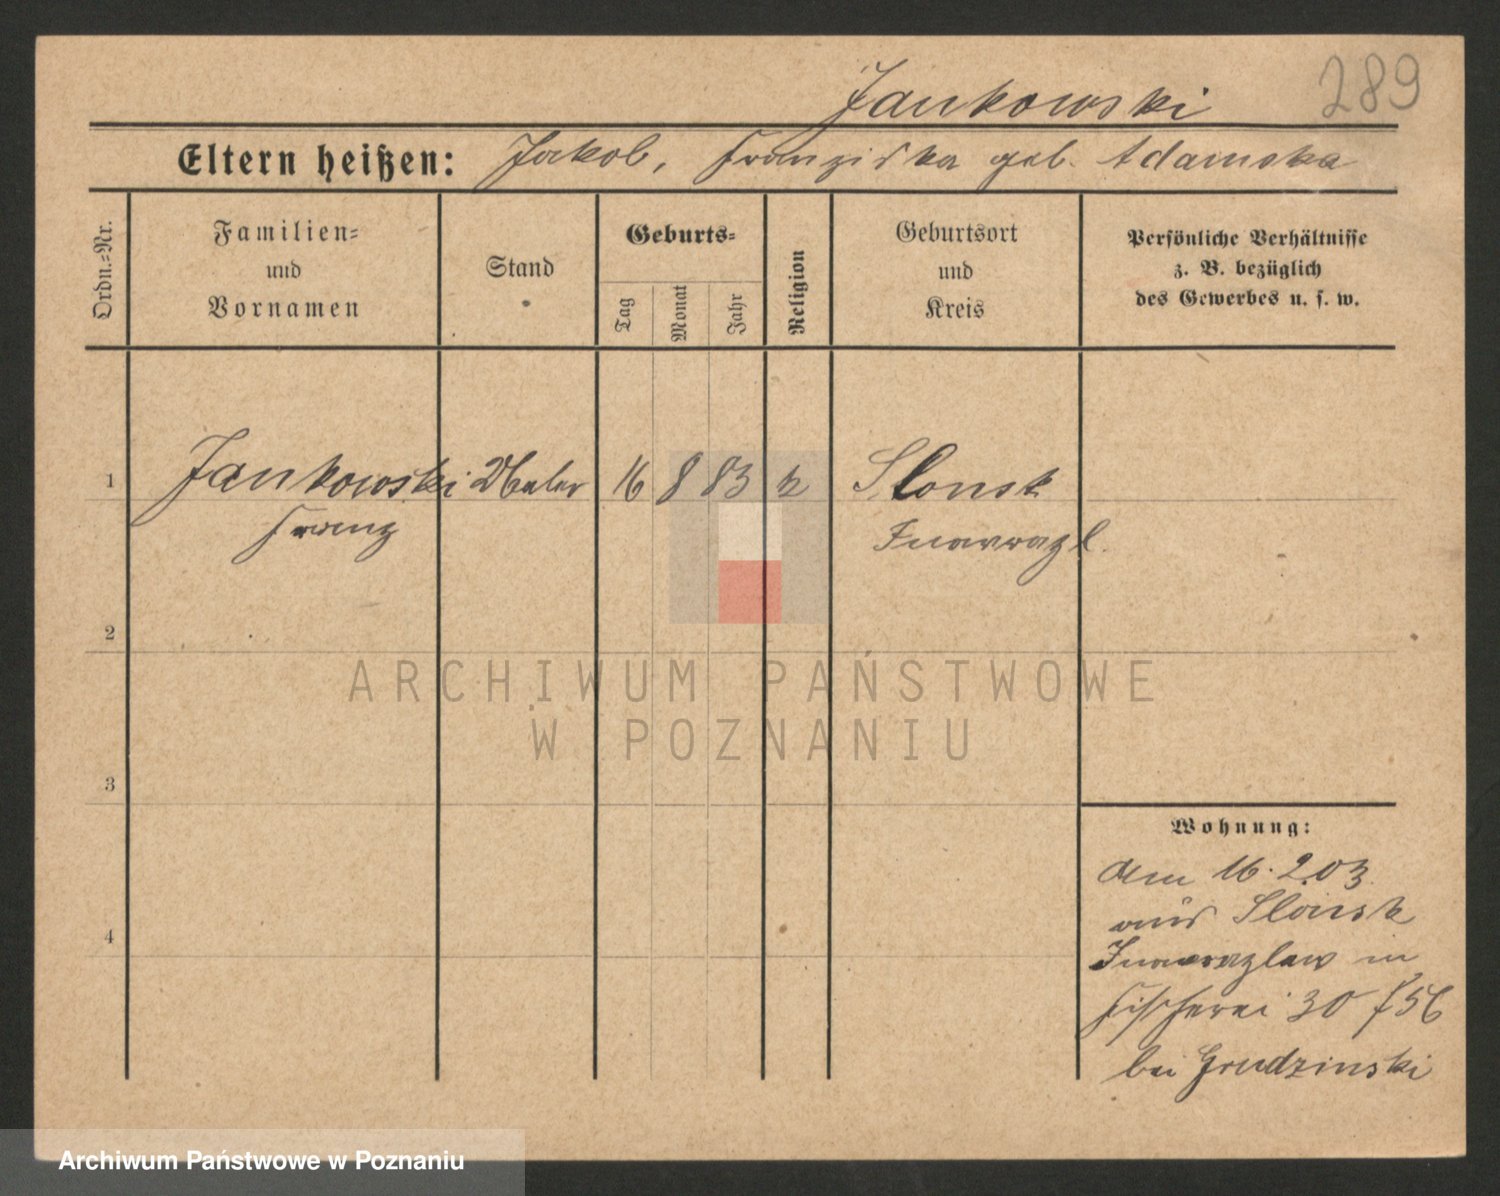 289
Jankowski
Eltern heißen: Jakob, Franziska geb. Adamska
Ordn.=Nr.
Familien=
und
Vornamen
Stand
Geburts=
Tag
Monat
Jahr
Religion
Geburtsort
und
Kreis
Persönliche Verhältnisse
z. B. bezüglich
des Gewerbes u. s. w.
1 Jankowski Maler 16 8 83 k Slonsk
Franz Inowrazl.
2
ARCHIWUM PAŃSTWOWE
W POZNANIU
3
Wohnung:
am 16.2.03
aus Slonsk
4
Inowrazlaw in
Fischerei 30
bei Grudzinski
Archiwum Państwowe w Poznaniu